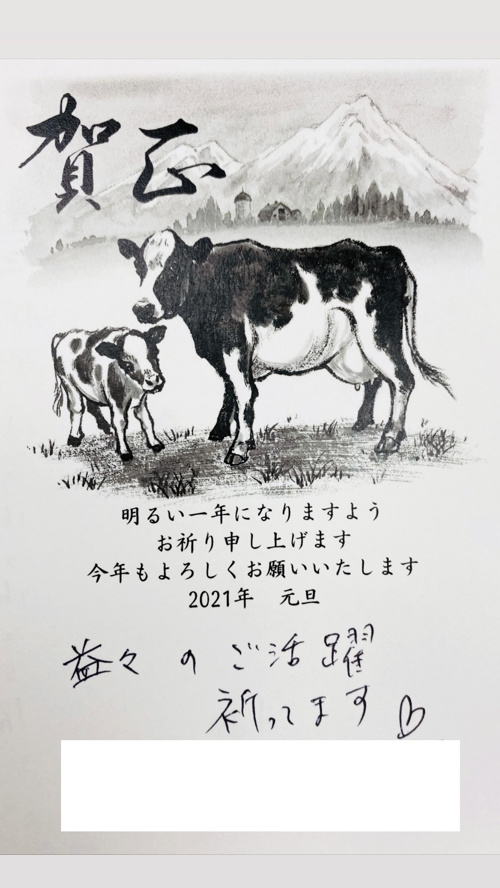 賀正
明るい一年になりますよう
お祈り申し上げます
今年もよろしくお願いいたします
2021年 元旦
益々のご活躍
祈ってます♡